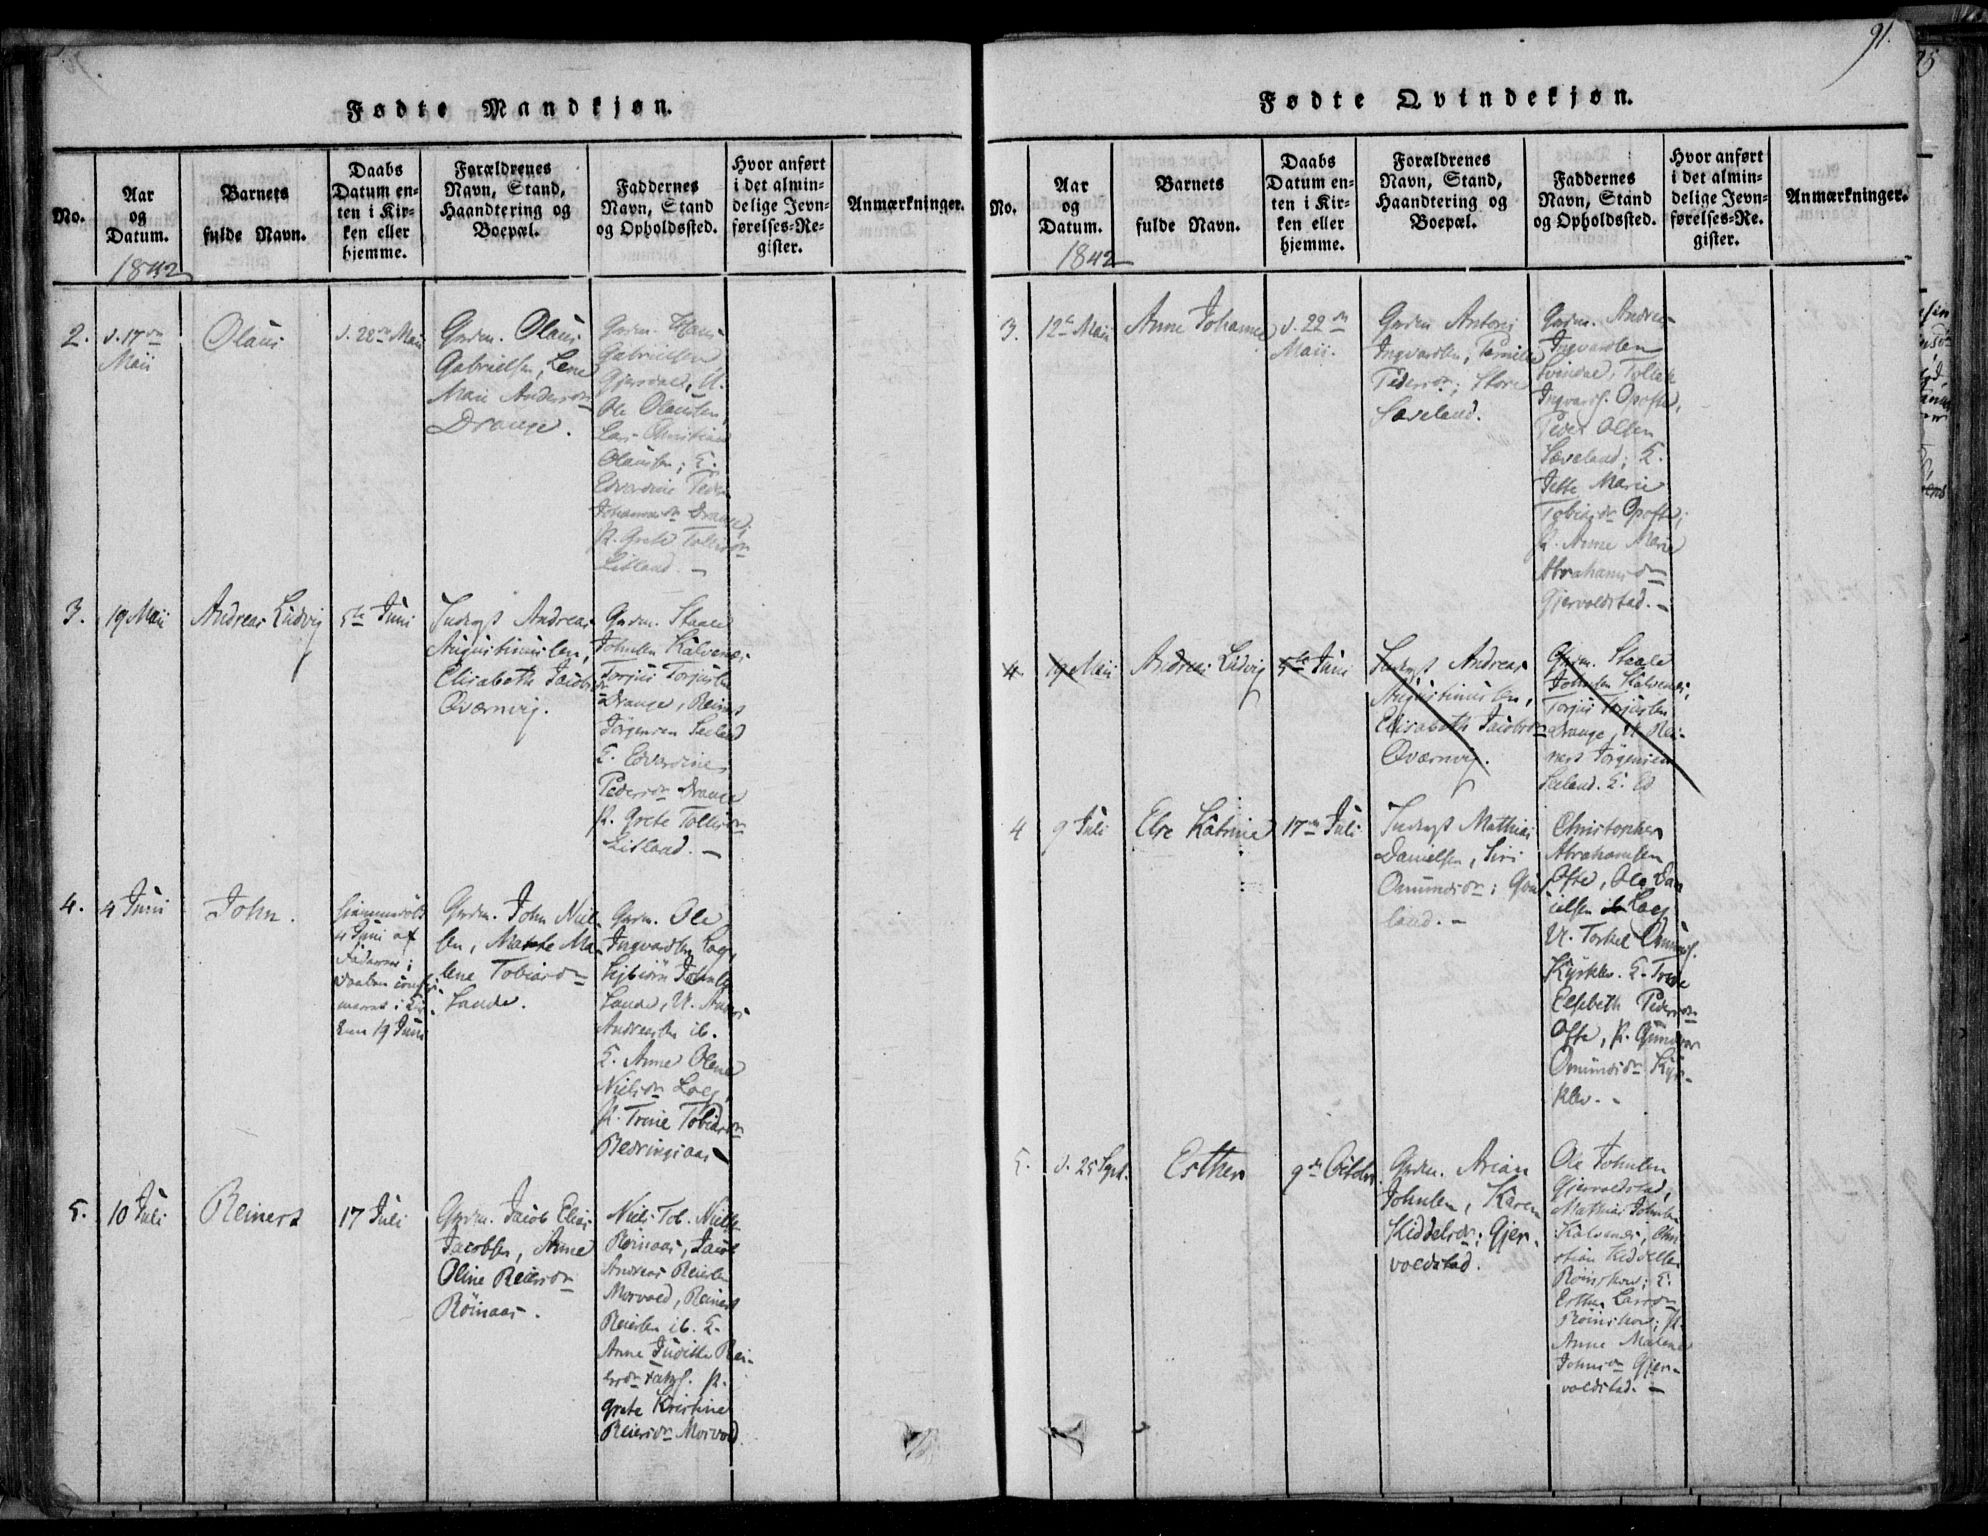 91.
Fødte Mandkjøn.
No.
Aar
og
Datum.
1842
Barnets
fulde Navn.
Daabs
Datum en-
ten i Kir-
ken eller
hjemme.
Forældrenes
Navn, Stand,
Haandtering og
Boepæl.
Faddernes
Navn, Stand
og Opholdssted.
Hvor anført
i det almin-
delige Jevn-
førelses-Re-
gister.
Anmærkninger.
2.
d. 17de
Maii
Olaus
d. 28de Maii
Grdm. Olaus
Gabrielsen, Lene
Marie Andersdr
Drange.
Grdm. Hans
Gabrielsen
Gjersdal, U.
Ole Olausen,
Lars Christian
Olausen; K.
Edvardine Peder
Johannesdr Drange;
P. Grete Tollisdr
Litland. —
3.
19 Maii
Andreas Ludvig
5te Juni
Inderst Andreas
Augustinussen,
Elisabeth Jacobsdr
Qværnvig.
Grdm. Staale
Johnsen Kalvenes,
Torjus Torjusen
Drange, Reinert
Jörgensen Seeland
K. Edvardine
Pedersdr Drange
P. Grete Tollisdr
Litland. —
4.
4 Juni
John.
hjemmedöbt
4 Juni af
Faderen;
Daaben confir-
meret i Kir-
ken 19 Juni
Grdm. John Niel-
sen, Malene Ma-
lene Tobiasdr
Lande.
Grdm. Ole
Ingvardsen Loeg,
Sigbiörn Johnsen
Lande, U. Anders
Andreassen ib.
K. Anne Olene
Nielsdr Loeg,
P. Trine Tobiasdr
Bedringsaas —
5.
10 Juli
Reinert
17 Juli
Grdm. Jacob Elias
Jacobsen, Anne
Oline Reiersdr
Röinaas.
Niels Tob. Nielsen
Röinaas, Jacob
Andreas Reiersen
Morvold, Reinert
Reiersen ib. K.
Anne Juditte Rei-
ersdr
P.
Grete Kristine
Reiersdr Morvold.
Fødte Qvindekjøn.
No.
Aar
og
Datum.
1842
Barnets
fulde Navn.
Daabs
Datum en-
ten i Kir-
ken eller
hjemme.
Forældrenes
Navn, Stand,
Haandtering og
Boepæl.
Faddernes
Navn, Stand
og Opholdssted.
Hvor anført
i det almin-
delige Jevn-
førelses-Re-
gister.
Anmærkninger.
3.
12te Maii
Anne Johanne
d. 22de
Maii.
Grdm Antoni
Ingvardsen, Pernille
Pedersdr; Store
Sæveland.
Grdm. Andreas
Ingvardsen
Svindal, Tollak
Ingvards. Opofte,
Peder Olsen
Sæveland; K.
Jette Marie
Tobiasdr Opofte;
P. Anne Marie
Abrahamsdr
Gjervoldstad. —
4.
19 Maii
Andreas Ludvig
5te Juni
Inderst Andreas
Augustinussen,
Elisabeth Jacobsdr
Qværnvig.
Grdm. Staale
Johnsen Kalvenes,
Torjus Torjusen
Drange, U. Rei-
nert Jörgensen
Seeland. K. Ed
4
9 Juli
Else Katrine
17de Juli
Inderst Mathias
Danielsen, Siri
Omundsdr; Qvas-
land. —
Christopher
Abrahamsen
Ofte, Ole Dan
ielsen Loeg
U. Torkel Omunds.
Kyrklev. K. Trine
Elsebeth Pedersdr
Ofte, P. Gunhar
Omundsdr Kyr-
klev. —
5.
d. 25 Sept.
Esther
9de October
Grdm. Arian
Johnsen, Karen
Kiddelsdr; Gjer-
voldstad.
Ole Johnsen
Gjervoldstad,
Mathias Johnsen
Kalvenes, Chri
stian Kiddelsen
Röinskov; K.
Esther Larsdr
Röinskov; P.
Anne Malene
Johnsdr Gjer-
voldstad. —